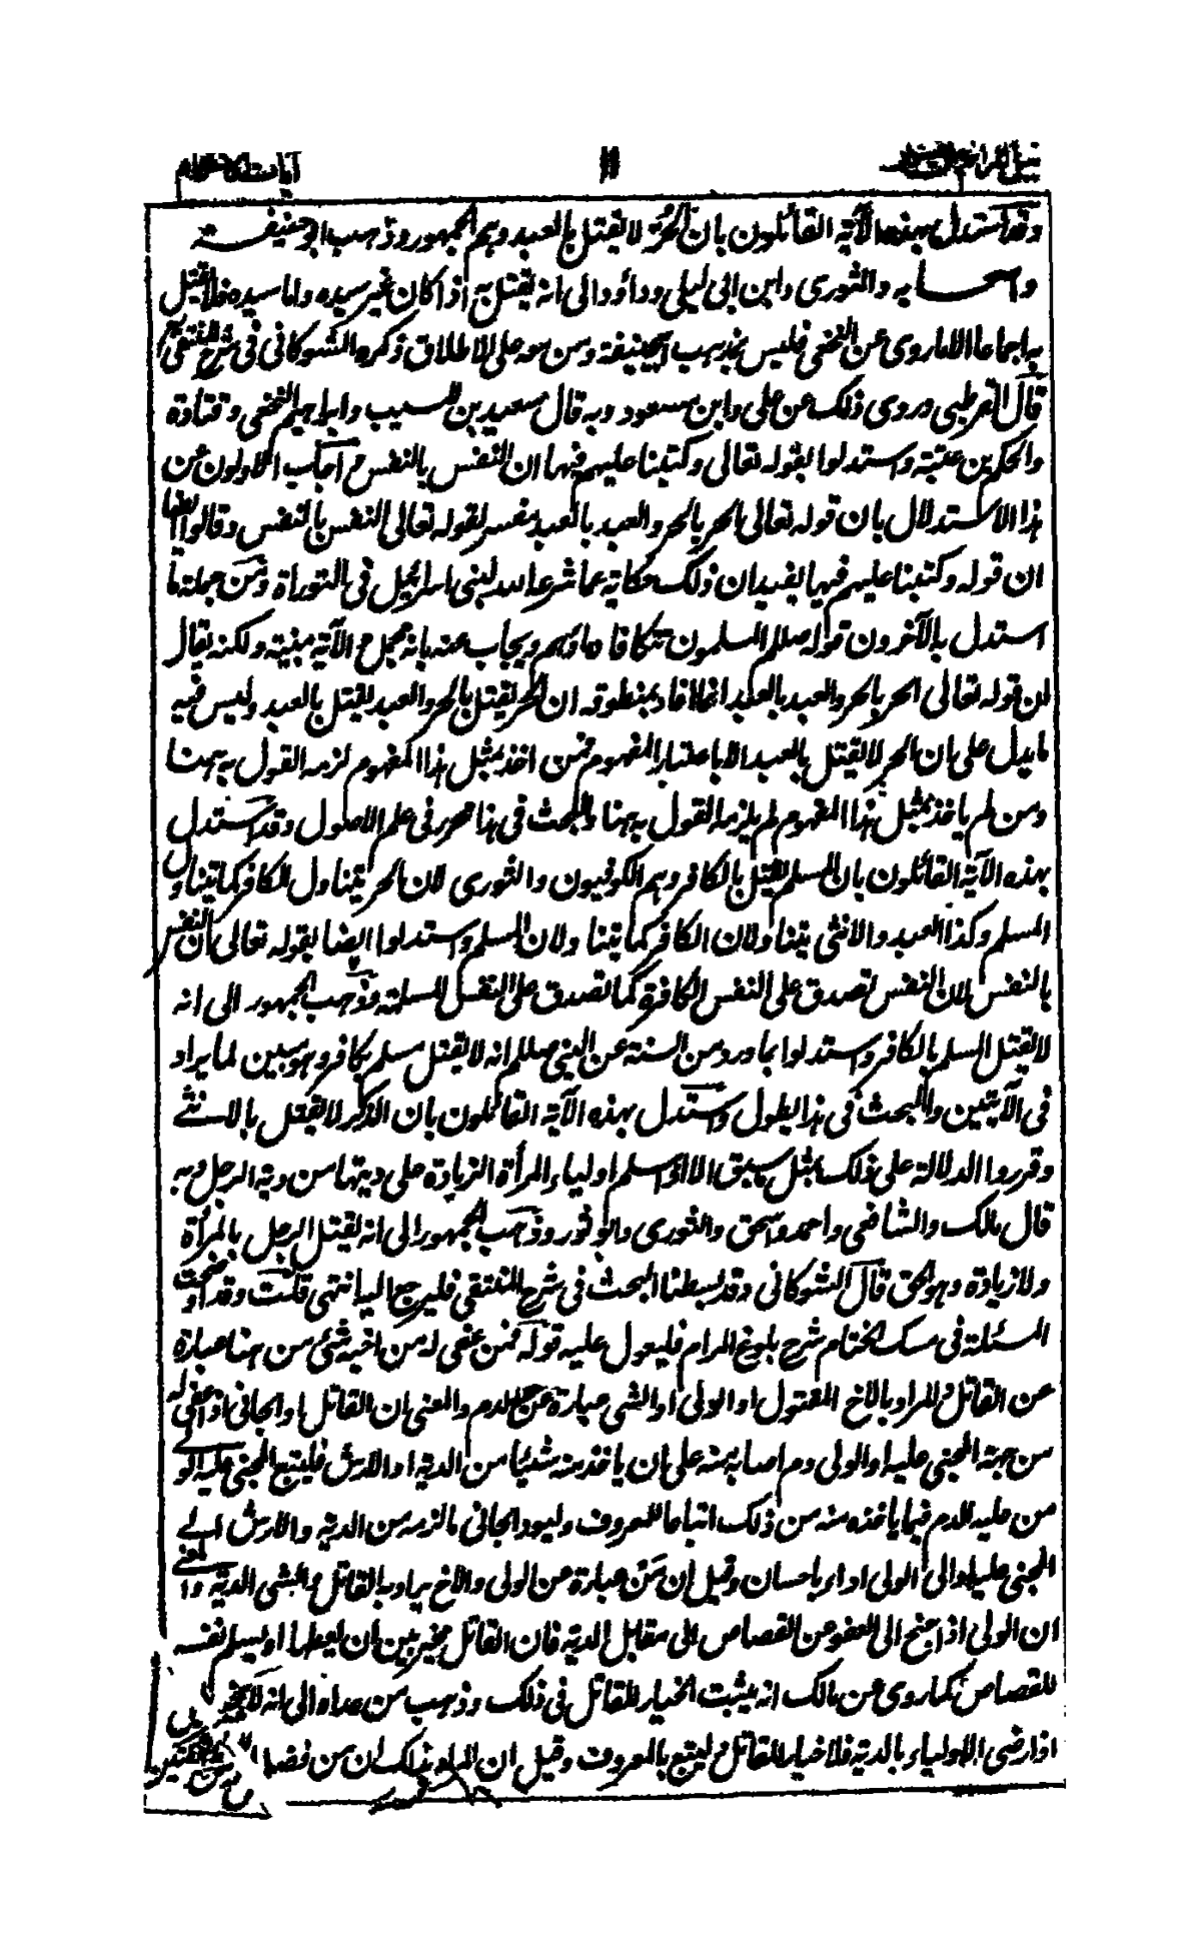 نيل المرام من تفسير ١١ آيات الاحكام
وقد استدل بهذه الآية القائلون بان الحر لا يقتل بالعبد وهم الجمهور وذهب ابو حنيفة
واصحابه والثورى وابن ابى ليلى وداؤد الى انه يقتل به اذا كان غير سيده واما سيده فلا يقتل
به اجماعا الا ما روى عن النخعى فليس بمذهب ابيحنيفة ومن معه على الاطلاق ذكره الشوكانى فى شرح المنتقى
قال القرطبى وروى ذلك عن على وابن مسعود وبه قال سعيد بن المسيب وابراهيم النخعى وقتادة
والحكم بن عتبة واستدلوا بقوله تعالى وكتبنا عليهم فيها ان النفس بالنفس واجاب الاولون عن
هذا الاستدلال بان قوله تعالى الحر بالحر والعبد بالعبد مفسر لقوله تعالى النفس بالنفس وقالوا ايضا
ان قوله وكتبنا عليهم فيها يفيد ان ذلك حكاية عما شرعه الله لبنى اسرائيل فى التوراة ومن جملة ما
استدل به الآخرون قوله صللم المسلمون تتكافا دماؤهم ويجاب عنه بانه مجمل والآية مبينة ولكنه يقال
ان قوله تعالى الحر بالحر والعبد بالعبد انما افاد بمنطوقه ان الحر يقتل بالحر والعبد يقتل بالعبد وليس فيه
ما يدل على ان الحر لا يقتل بالعبد الا باعتبار المفهوم فمن اخذ بمثل هذا المفهوم لزمه القول به ههنا
ومن لم ياخذ بمثل هذا المفهوم لم يلزمه القول به ههنا والبحث فى هذا محرر فى علم الاصول وقد استدل
بهذه الآية القائلون بان المسلم يقتل بالكافر وهم الكوفيون والثورى لان الحر يتناول الكافر كما يتناول
المسلم وكذا العبد والانثى يتناولان الكافر كما يتناولان المسلم واستدلوا ايضا بقوله تعالى ان النفس
بالنفس لان النفس تصدق على النفس الكافرة كما تصدق على النفس المسلمة وذهب الجمهور الى انه
لا يقتل المسلم بالكافر واستدلوا بما ورد من السنة عن النبى صللم انه لا يقتل مسلم بكافر وهو مبين لما يراد
فى الآيتين والبحث فى هذا يطول واستدل بهذه الآية القائلون بان الذكر لا يقتل بالانثے
وقرروا الدلالة على ذلك بمثل ما سبق الا اذا سلم اولياء المرأة الزيادة على ديتها من دية الرجل وبه
قال مالك والشافعى واحمد واسحق والثورى وابو ثور وذهب الجمهور الى انه يقتل الرجل بالمرأة
ولا زيادة وهو الحق قال الشوكانى وقد بسطنا البحث فى شرح المنتقى فليرجع اليه انتهى قلت وقد اوضحت
المسئلة فى مسك الختام شرح بلوغ المرام فليعول عليه قوله فمن عفى له من اخيه شئ من هنا عبارة
عن القاتل والمراد بالاخ المقتول او الولى او الشئ عبارة عن الدم والمعنى ان القاتل او الجانى اذا عفى له
من جهة المجنى عليه او الولى دم اصابه منه على ان ياخذ منه شيئا من الدية او الارش فليتبع المجنى عليه او الولے
من عليه الدم فيما ياخذه منه من ذلك اتباعا للمعروف وليود الجانى ما لزمه من الدية والارش الے
المجنى عليه او الى الولى اداء باحسان وقيل ان من عبارة عن الولى والاخ يراد به القاتل والشئ الدية والمعنے
ان الولى اذا جنح الى العفو عن القصاص الى مقابل الدية فان القاتل مخير بين ان يعطها او يسلم نفسه
للقصاص كما روى عن مالك انه يثبت الخيار للقاتل فى ذلك وذهب من عداه الى انه لا يخير بل
اذا رضى الاولياء بالدية فلا خيار للقاتل بل يتبع بالمعروف وقيل ان المراد بذلك ان من فضل